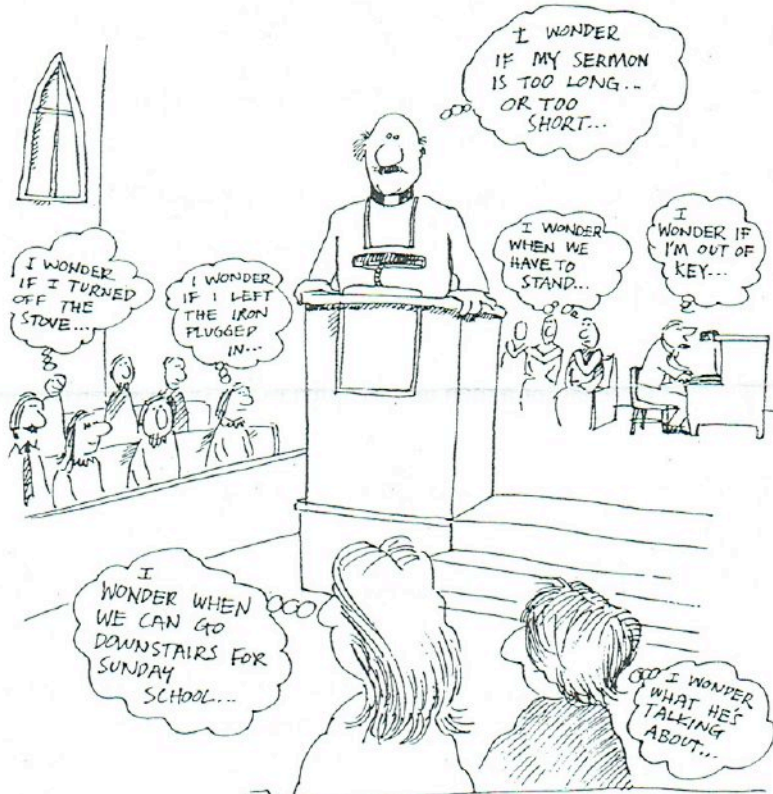 I WONDER
IF MY SERMON
IS TOO LONG...
OR TOO
SHORT...
I WONDER
IF I TURNED
OFF THE
STOVE...
I WONDER
IF I LEFT
THE IRON
PLUGGED
IN...
I WONDER
WHEN WE
HAVE TO
STAND...
I
WONDER IF
I'M OUT OF
KEY...
I
WONDER WHEN
WE CAN GO
DOWNSTAIRS FOR
SUNDAY
SCHOOL...
I WONDER
WHAT HE'S
TALKING
ABOUT...